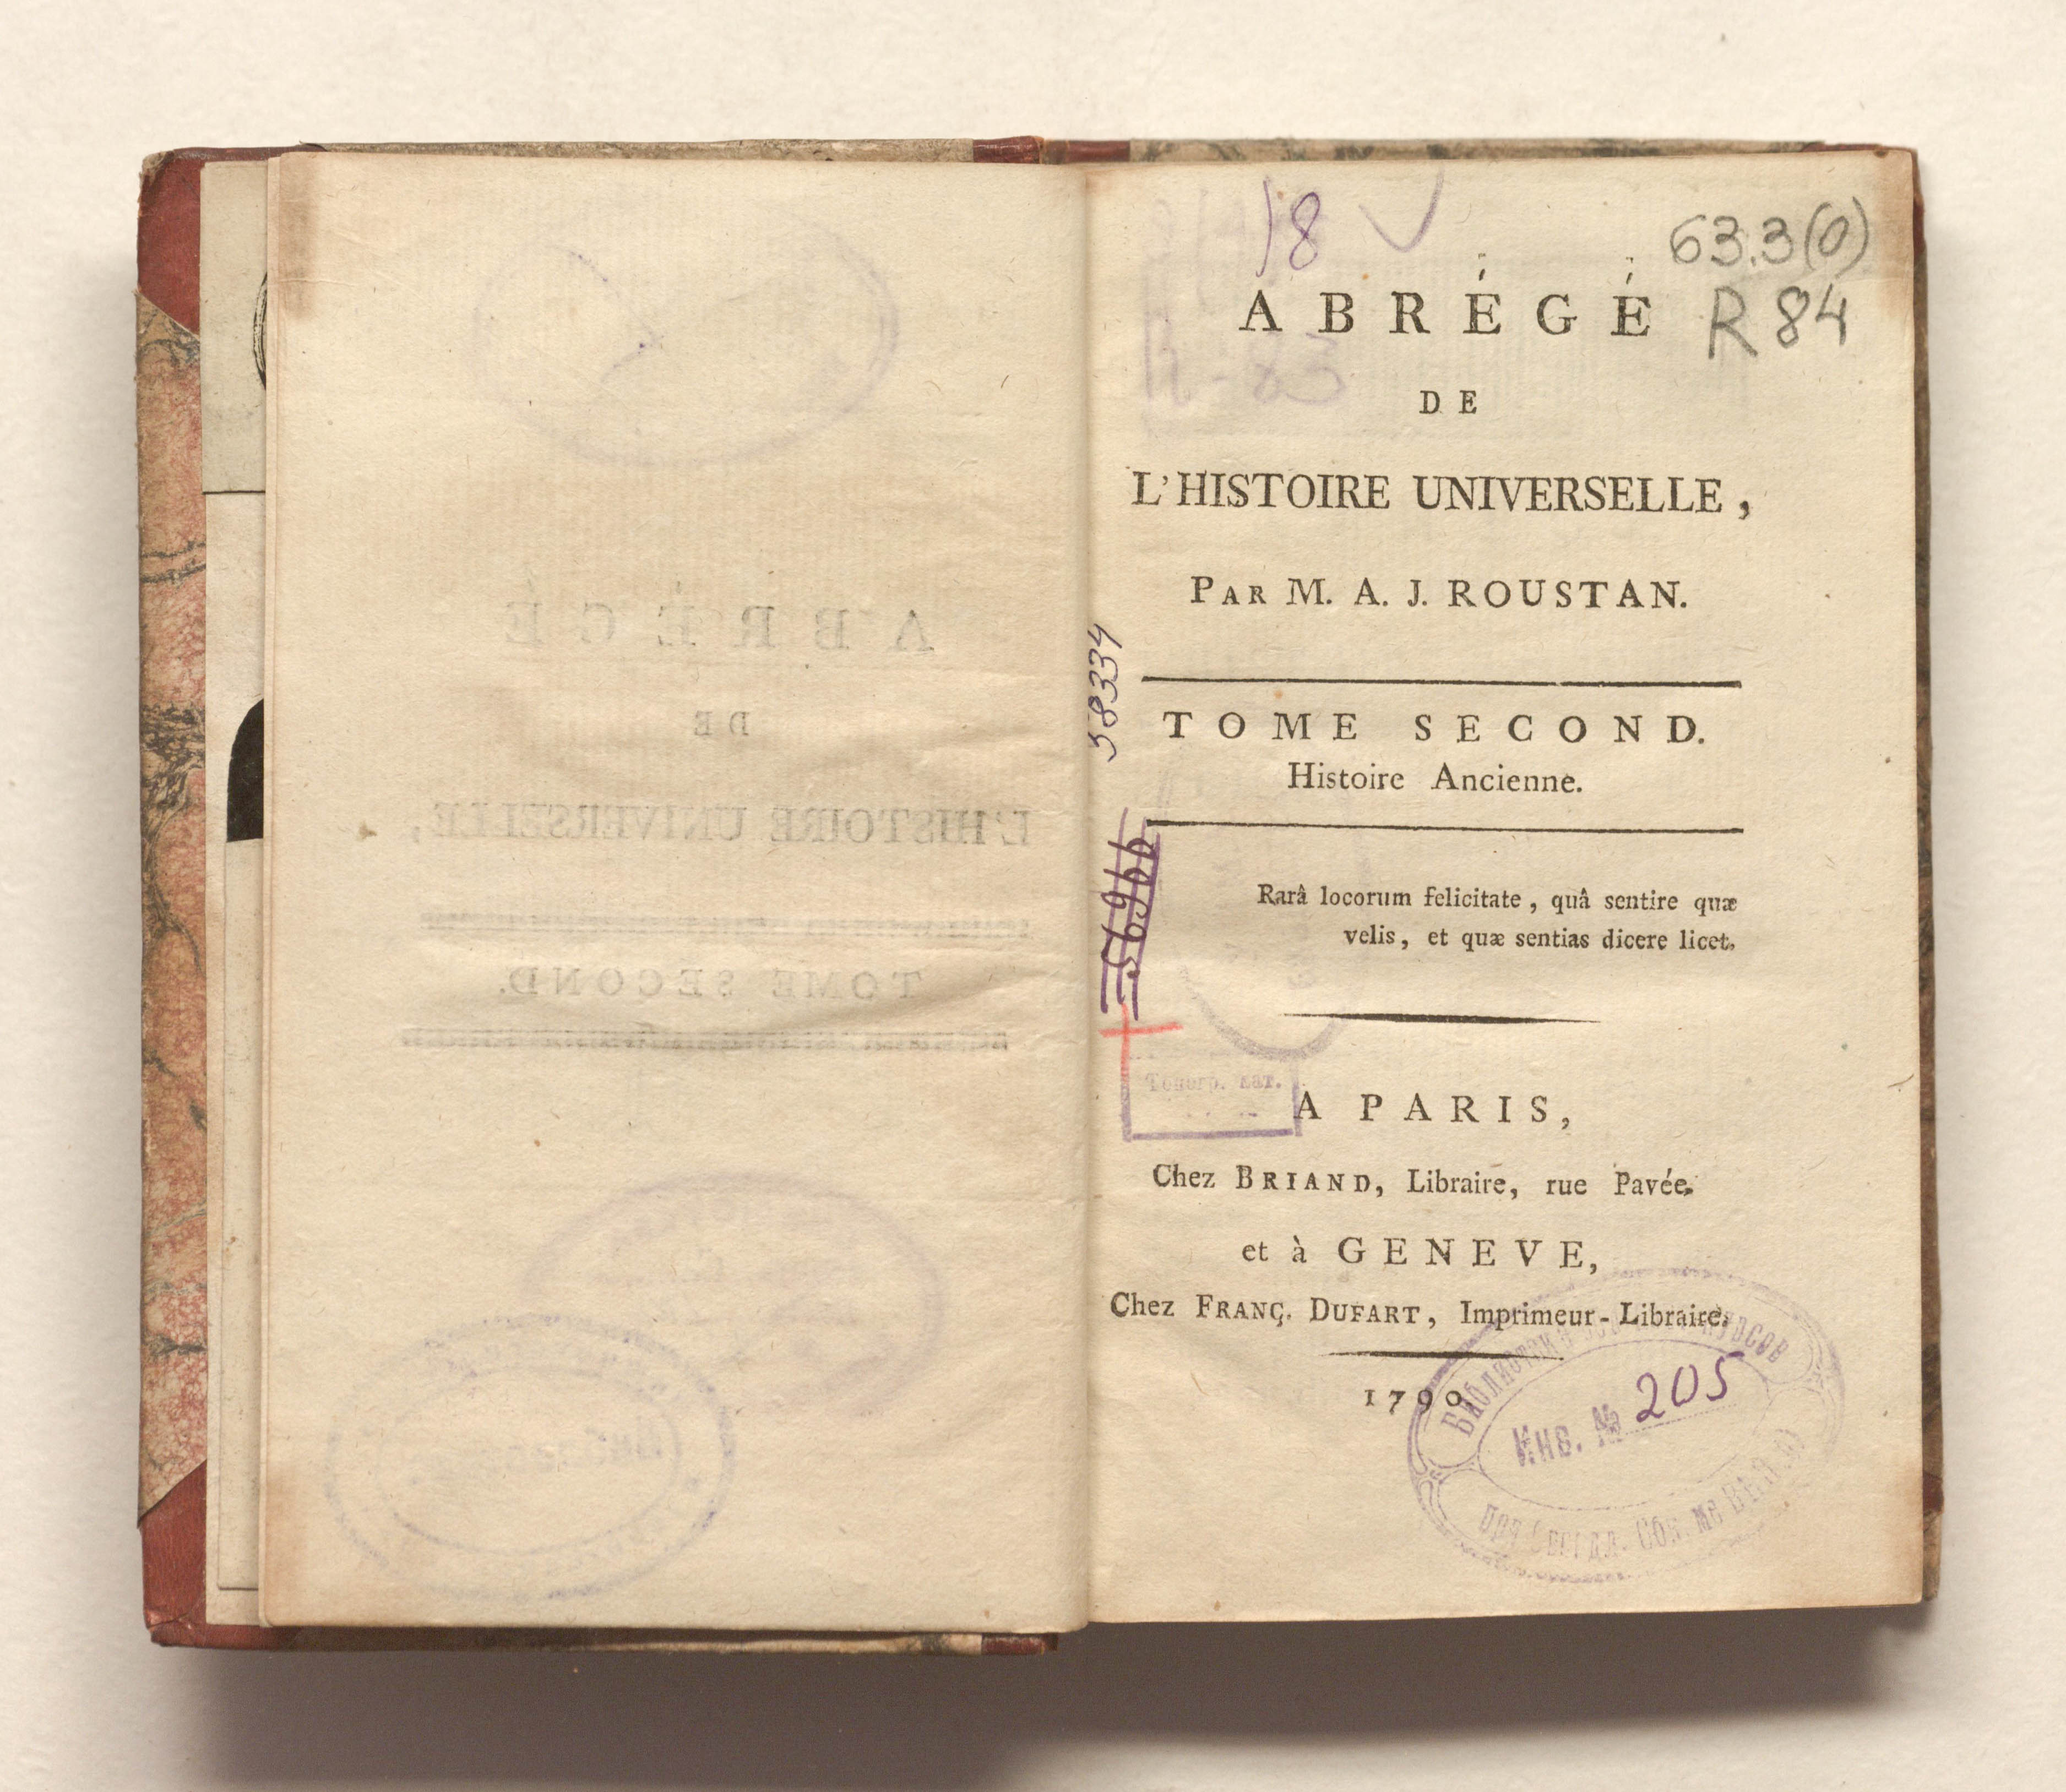 18
63.3(0)
ABRÉGÉ
R 84
DE
L'HISTOIRE UNIVERSELLE,
PAR M. A. J. ROUSTAN.
58334
TOME SECOND.
Histoire Ancienne.
56966
Rarâ locorum felicitate, quâ sentire quæ
velis, et quæ sentias dicere licet.
A PARIS,
Chez BRIAND, Libraire, rue Pavée.
et à GENEVE,
Chez FRANÇ. DUFART, Imprimeur-Libraire.
1790.
Инв. № 205